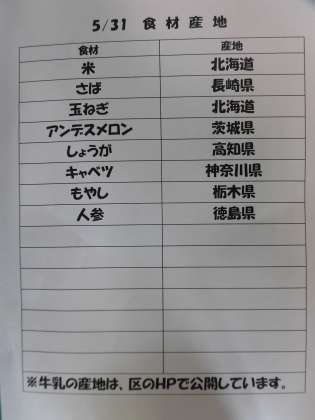 5/31 食材産地
食材 産地
米 北海道
さば 長崎県
玉ねぎ 北海道
アンデスメロン 茨城県
しょうが 高知県
キャベツ 神奈川県
もやし 栃木県
人参 徳島県
※牛乳の産地は、区のHPで公開しています。